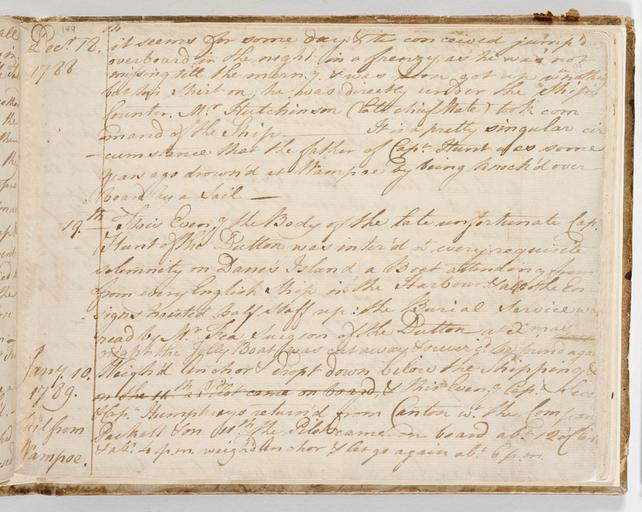 199
Decr. 18. th it seems for some days & tis conceived jump'd
1788 overboard in the night (in a frenzy) as he was not
missing till the morng. & was
but his Shirt on, he was directly under the Ships
Counter. Mr. Hutchinson (late chief Mate) took com
mand of the Ship. It is a pretty singular cir
cumstance that the father of Capn. Hunt was some
years ago drown'd at Wampoe, by being knock'd over
board by a Sail —
19. th This Eveng. the Body of the late unfortunate Cap.
Hunt of the Dutton was inter'd wt. every requisite
solemnity on Dane's Island a Boat attending from
from every English Ship in the Harbour & all the En
signs hoisted half staff up: the Burial Service was
read by Mr. Surgeon of the Dutton at
the Jolly Boat was cut away &
Jany. 10. Weigh'd Anchor & dropt down below the Shipping &
1789. on the 11th a Pilot came on board, & this Eveng. Capn.
& Capn. Humphreys return'd from Canton wt. the Company
Sail from Packett & on 11th the Pilot came on board abt. 12 o'Clk
Wampoe. & abt. 4 p.m. weigh'd Anchor & let go again abt. 6 p.m.